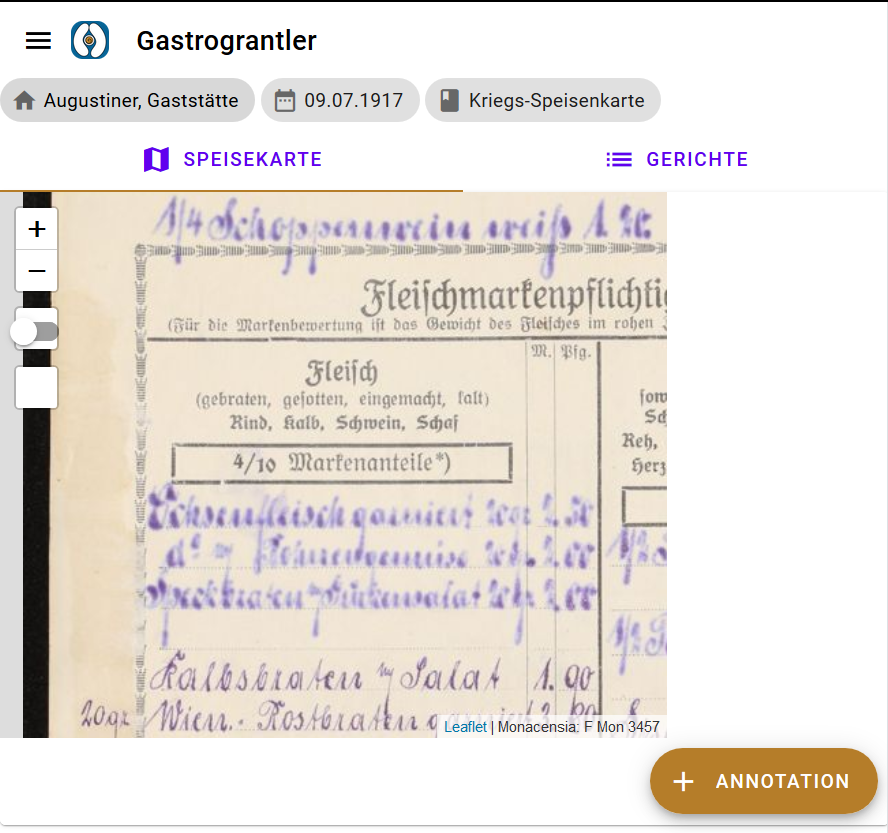 Gastrograntler
Augustiner, Gaststätte
09.07.1917
Kriegs-Speisenkarte
SPEISEKARTE
GERICHTE
+
−
1/4 Schoppenwein weiß 1.
Fleiſchmarkenpflichti
(Für die Markenbewertung iſt das Gewicht des Fleiſches im rohen
Fleiſch
M. Pfg.
(gebraten, geſotten, eingemacht, kalt)
Rind, Kalb, Schwein, Schaf
4/10 Markenanteile*)
ſow
Sch
Reh,
Herz
Ochsenfleisch garniert 2.50
do m/ Bohnengemüse 2.00
1/2
Speckbraten m/ Gurkensalat 2.00
1/2
Kalbsbraten m/ Salat 1.90
20gr Wien. Rostbraten
Leaflet | Monacensia: F Mon 3457
+ ANNOTATION